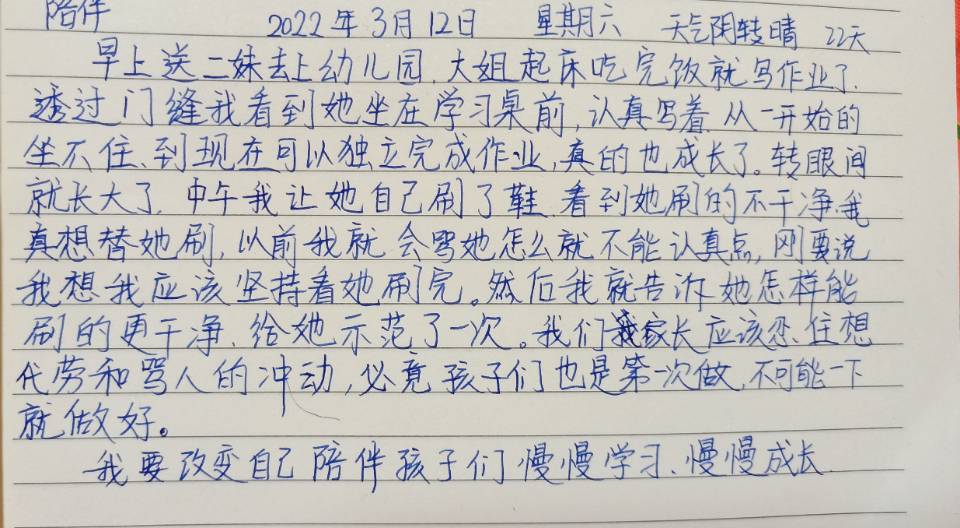 陪伴 2022年3月12日 星期六 天气阴转晴 22天
早上送二妹去上幼儿园,大姐起床吃完饭就写作业了.
透过门缝我看到她坐在学习桌前,认真写着.从一开始的
坐不住、到现在可以独立完成作业,真的也成长了。转眼间
就长大了.中午我让她自己刷了鞋.看到她刷的不干净.我
真想替她刷,以前我就会骂她怎么就不能认真点,刚要说
我想我应该坚持看她刷完。然后我就告诉她怎样能
刷的更干净、给她示范了一次。我们家长应该忍住想
代劳和骂人的冲动,必竟孩子们也是第一次做,不可能一下
就做好。
我要改变自己陪伴孩子们慢慢学习、慢慢成长.